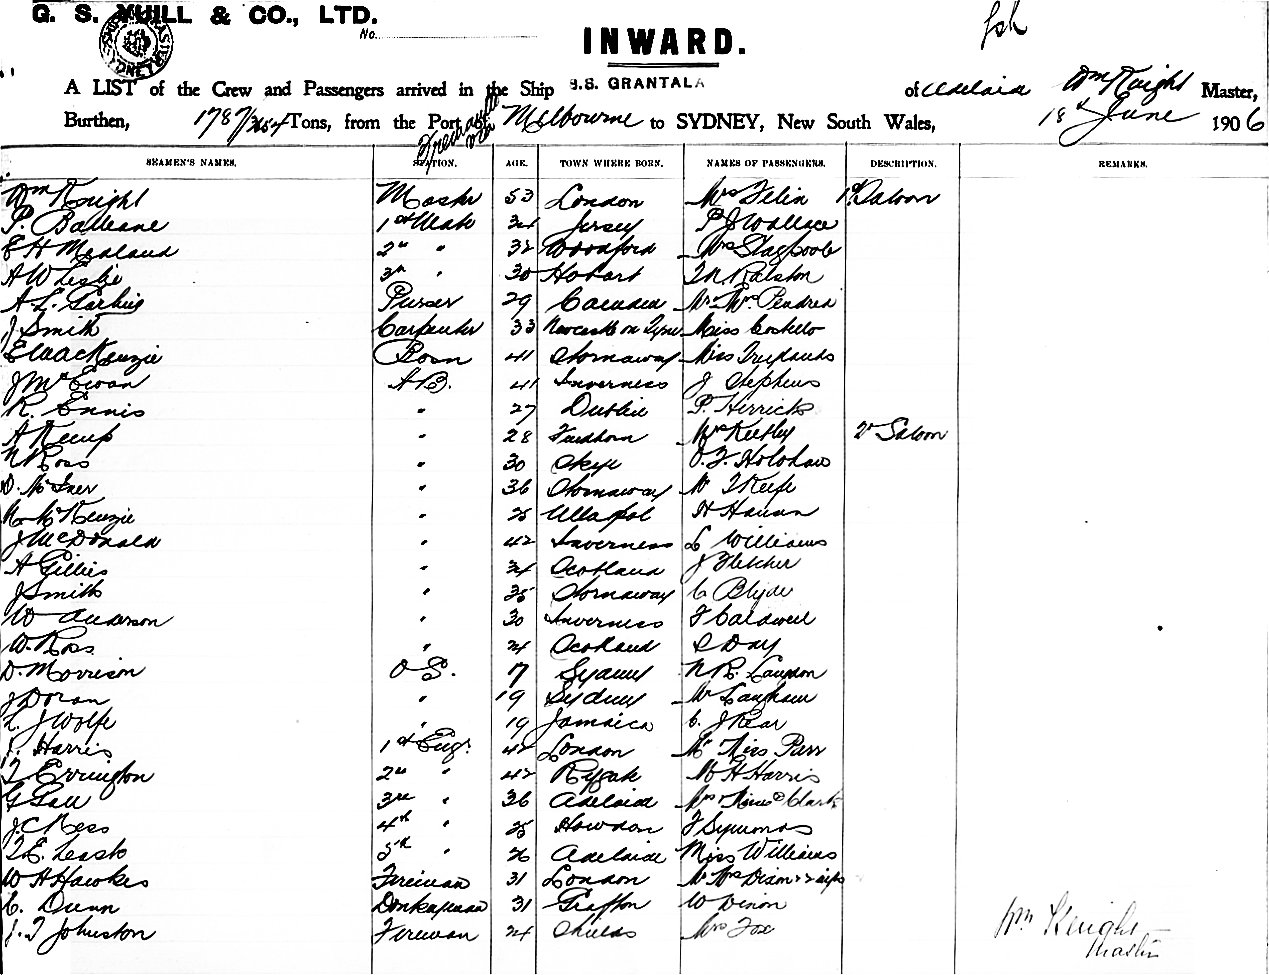 G. S. YUILL & CO., LTD.
No.
INWARD.
A LIST of the Crew and Passengers arrived in the Ship S.S. GRANTALA of Adelaide Wm Knight Master,
Burthen, 1787 Tons, from the Port of Fremantle via Melbourne to SYDNEY, New South Wales, 18th June 1906
SEAMEN'S NAMES. STATION. AGE. TOWN WHERE BORN. NAMES OF PASSENGERS. DESCRIPTION. REMARKS.
Wm Knight Master 53 London Mrs 1st Saloon
P. Balleane 1st Mate 34 Jersey P J Wallace
E H Medland 2nd " 32 Woodford Mrs Stagpoole
A W Leslie 3rd " 30 Hobart Ralston
A. L. 29 Purser Camden Mr Mrs Pendred
J Smith Carpenter 33 Newcastle on Tyne Miss Costello
E MacKenzie Bosn 41 Stornaway Miss
J McEwan A B. 41 Inverness J Stephens
R. Ennis " 27 Dublin P. Herrick
A " 28 Findhorn Mrs 2nd Saloon
N Ross " 30 Skye
D. McIver " 36 Stornaway Mr Keefe
McKenzie " 25 Ullapol H Hanan
J McDonald " 42 Inverness L Williams
A Gillies " 34 Scotland J Fletcher
J Smith " 35 Stornaway C Blyde
W Anderson " 30 Inverness F Caldwell
W. Ross " 24 Scotland S Day
D. Morrison O S. 17 Sydney N R.
J Doran " 19 Sydney Mr Langham
L. J Wolfe " 19 Jamaica C. J Rear
Harris 1st Eng. 42 London Mr Miss Parr
T Errington 2nd " 42 H Harris
G 3rd " 36 Adelaide Mrs Clark
J. C Ress 4th " 25 Howdon F Symonds
T. E. Leask 5th " 26 Adelaide Miss Williams
W H Hawkes Fireman 31 London Mr Mrs
C. Dunn Donkeyman 31 Grafton W Dixon
J. T Johnston Fireman 24 Shields Mrs Fox
Wm Knight
Master